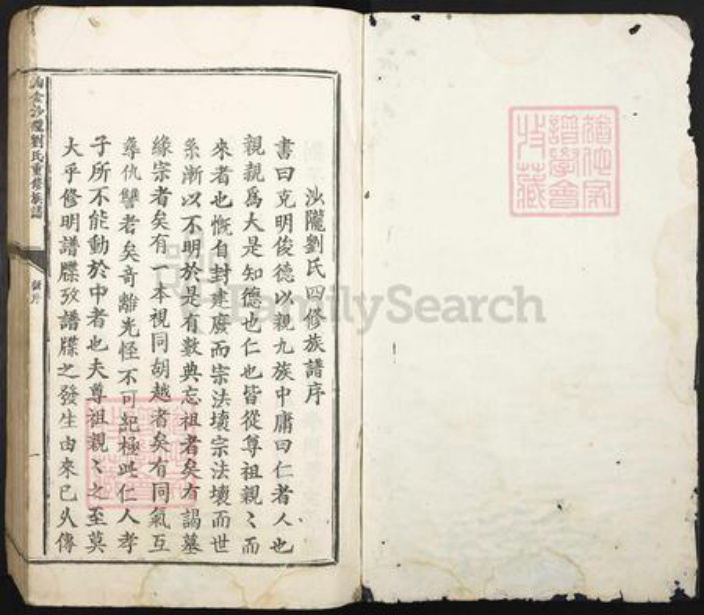 沙隴劉氏四修族譜序
書曰克明俊德以親九族中庸曰仁者人也
親親爲大是知德也仁也皆從尊祖親〻而
來者也慨自封建廢而宗法壞宗法壞而世
系漸以不明於是有數典忘祖者矣有謁墓
緣宗者矣有一本視同胡越者矣有同氣互
尋仇讐者矣奇離光怪不可記極此仁人孝
子所不能動於中者也夫尊祖親〻之至莫
大乎修明譜牒攷譜牒之發生由來已久傳
沙隴劉氏重修族譜
FamilySearch
譜學會
收藏